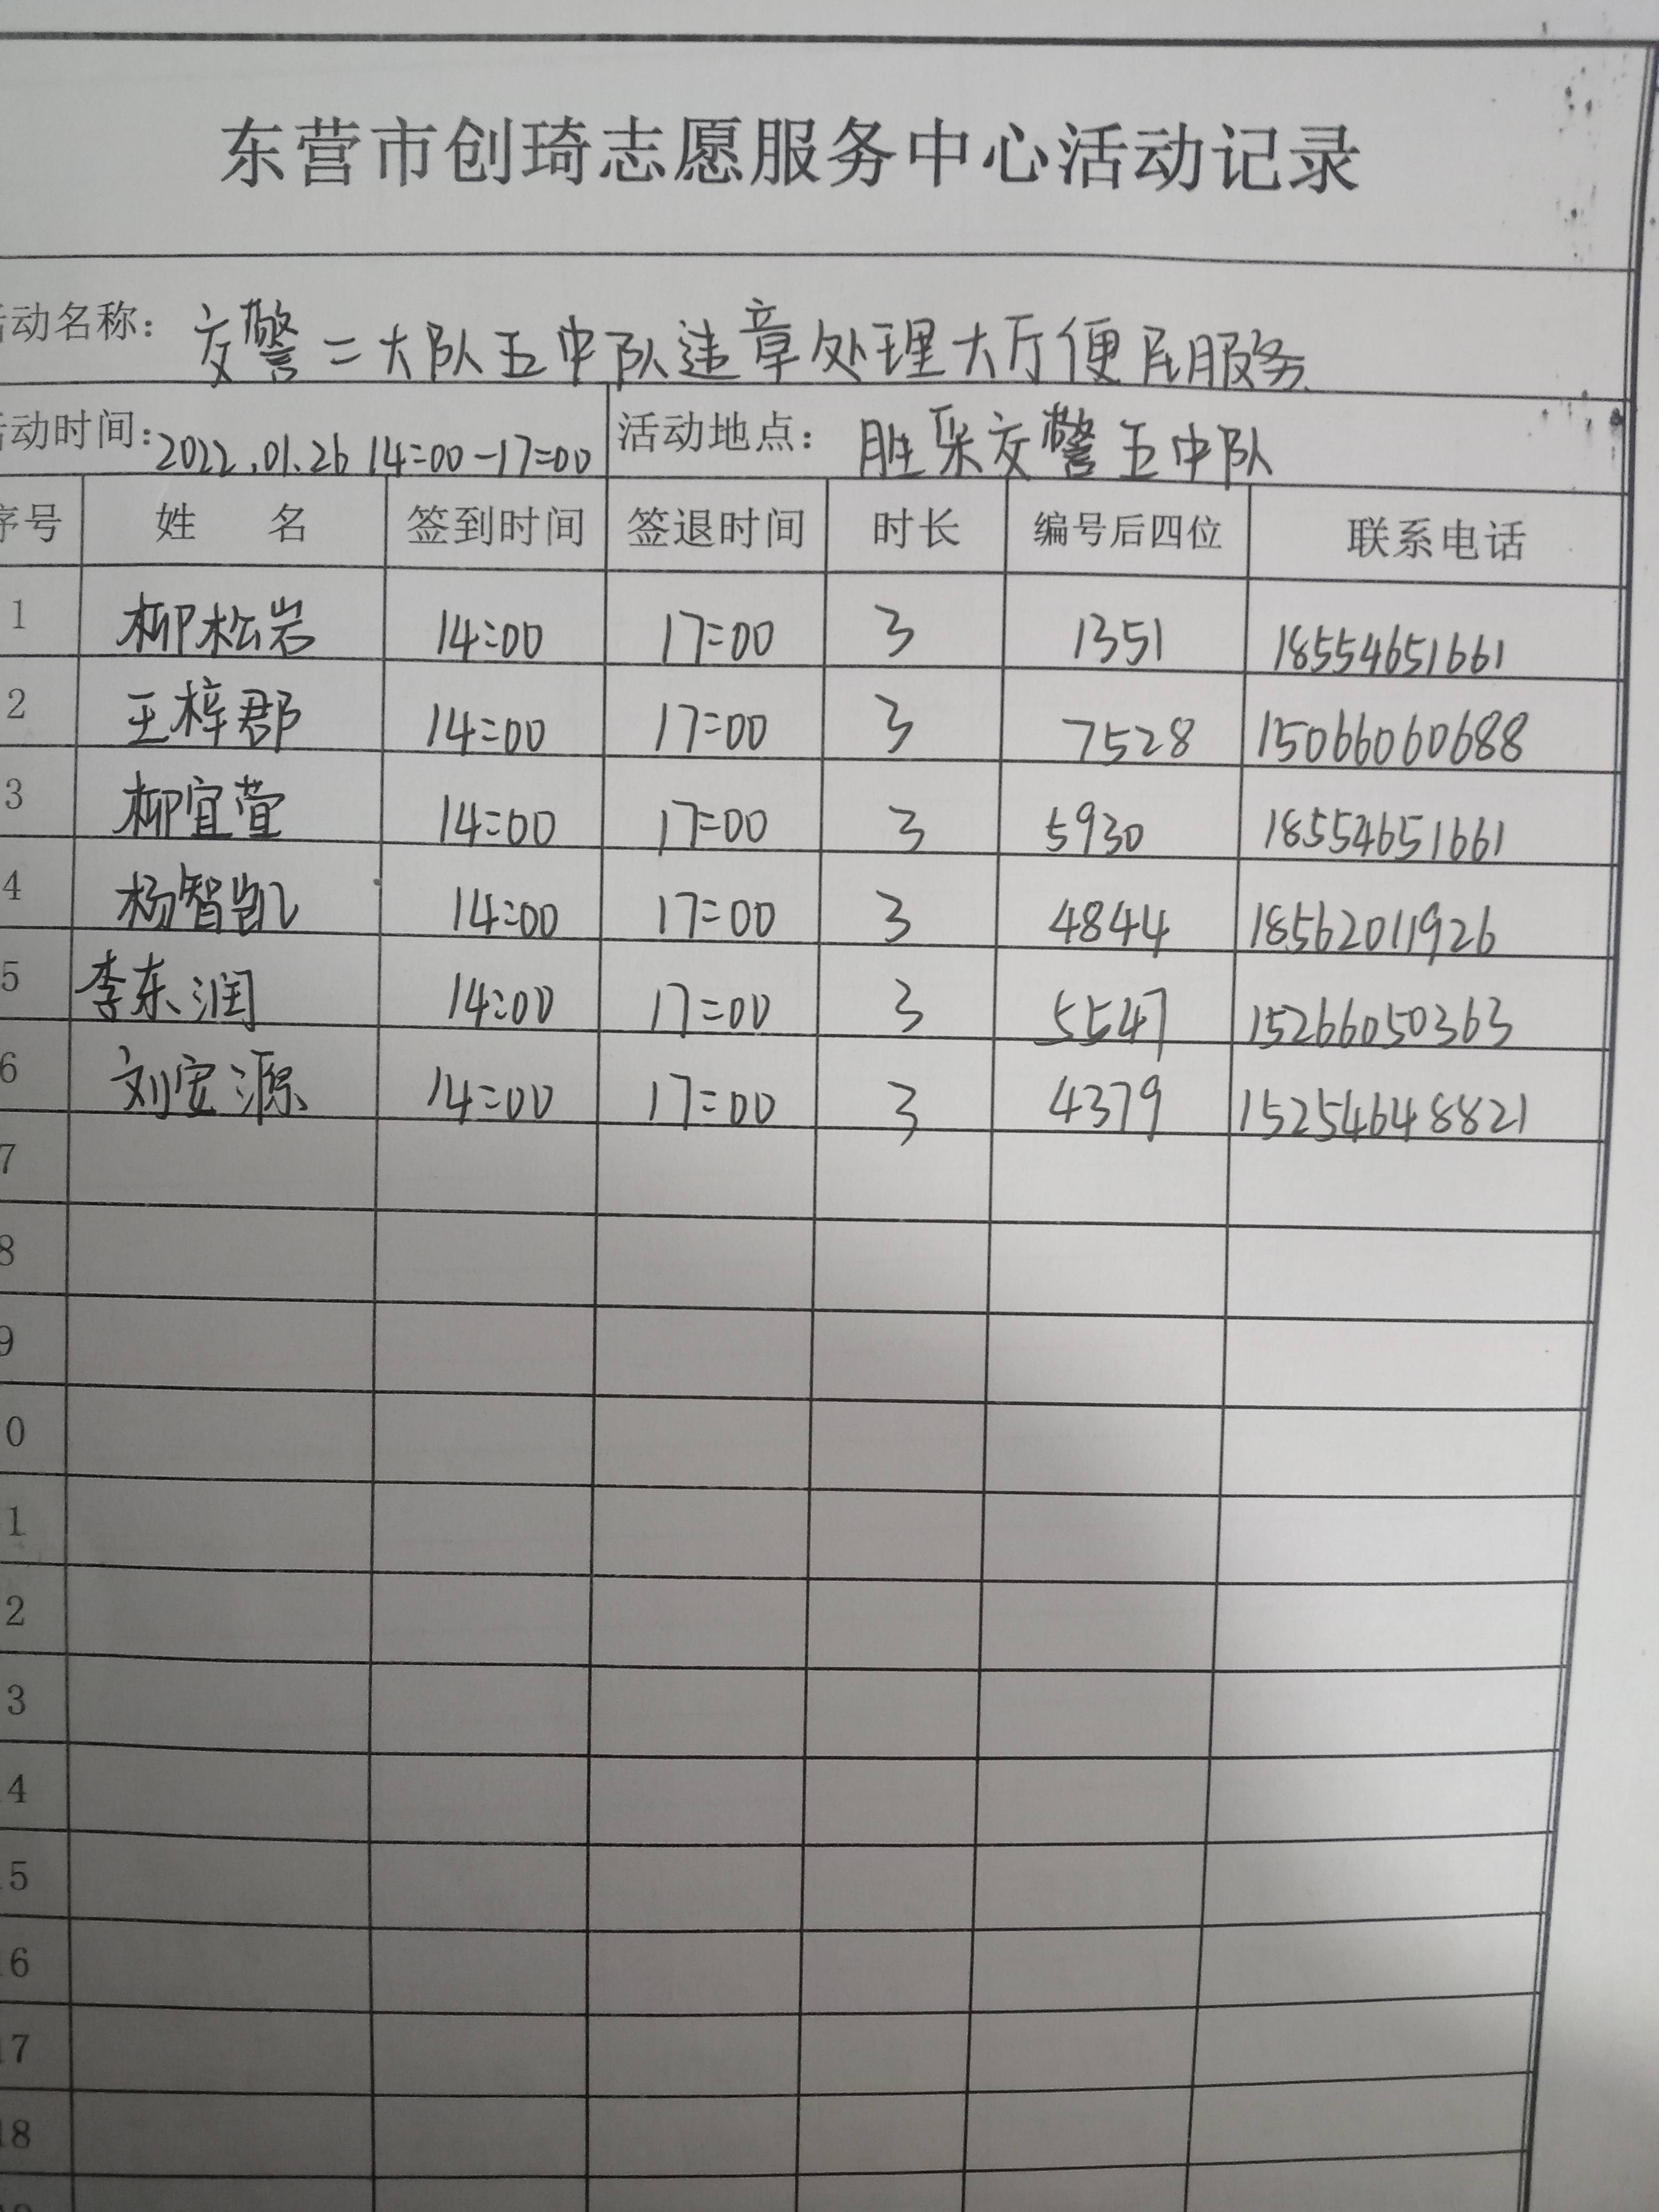 东营市创琦志愿服务中心活动记录
动名称： 交警二大队五中队违章处理大厅便民服务
动时间：2022.01.26 14:00-17:00 活动地点： 胜采交警五中队
序号 姓 名 签到时间 签退时间 时长 编号后四位 联系电话
1 柳松岩 14:00 17:00 3 1351 18554651661
2 王梓郡 14:00 17:00 3 7528 15066060688
3 柳宜萱 14:00 17:00 3 5930 18554651661
4 杨智凯 14:00 17:00 3 4844 18562011926
5 李东润 14:00 17:00 3 5547 15266050363
6 刘宏源 14:00 17:00 3 4379 15254648821
7
8
9
0
1
2
3
4
5
6
7
18